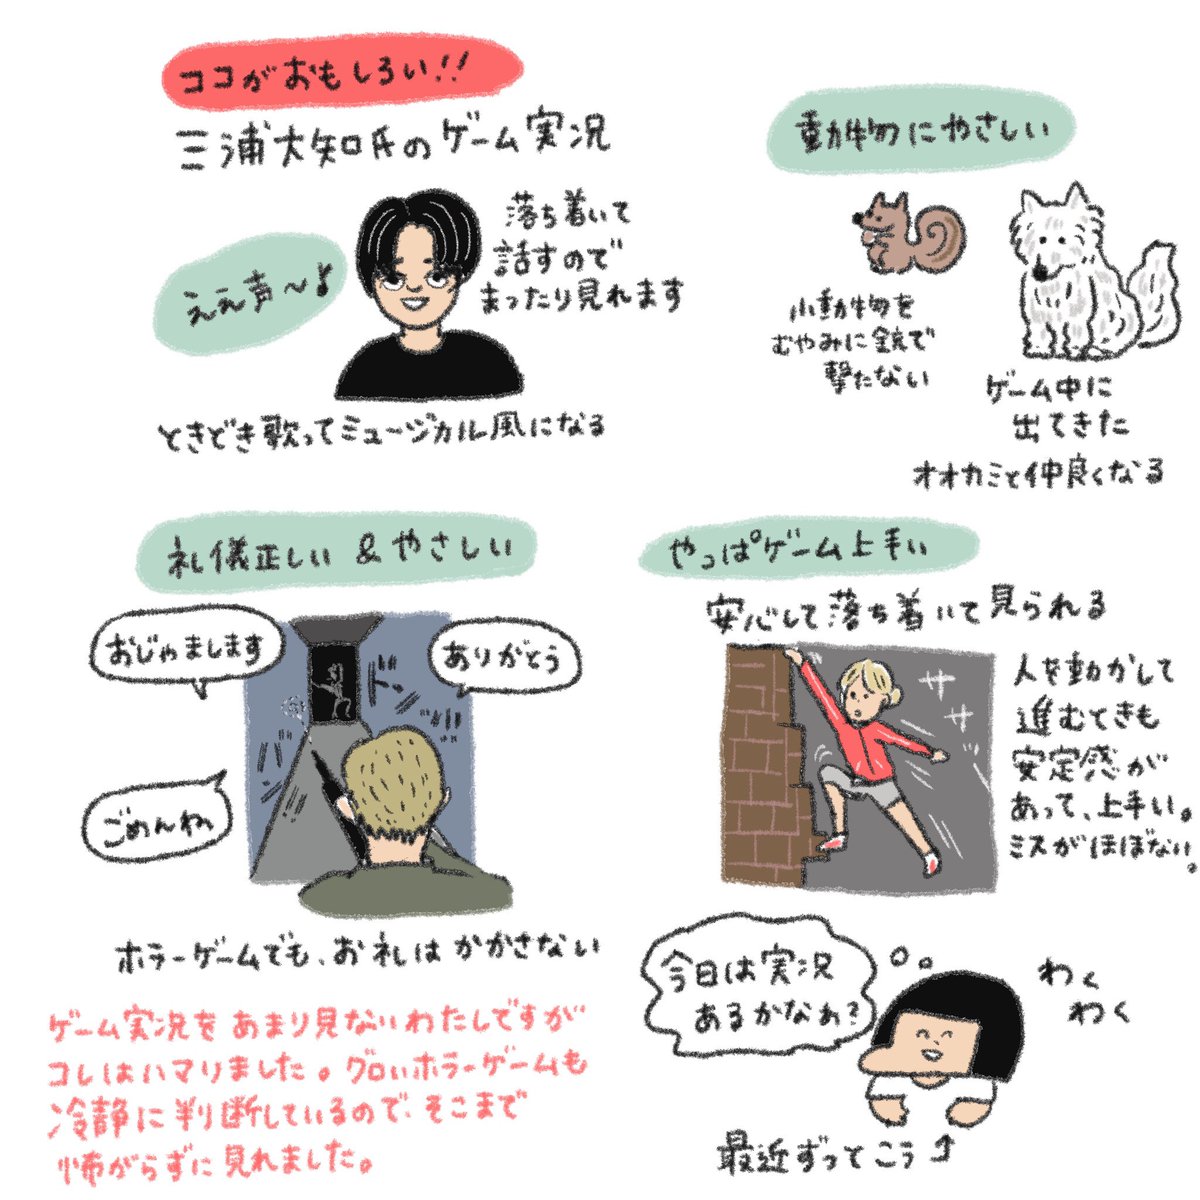 ココがおもしろい!!
三浦大知氏のゲーム実況
ええ声〜♪
落ち着いて
話すので
まったり見れます
ときどき歌ってミュージカル風になる
動物にやさしい
小動物を
むやみに銃で
撃たない
ゲーム中に
出てきた
オオカミと仲良くなる
礼儀正しい &やさしい
おじゃまします
ありがとう
ごめんね
バン
ドン
ホラーゲームでも、お礼はかかさない
やっぱゲーム上手い
安心して落ち着いて見られる
ササ
人を動かして
進むときも
安定感が
あって、上手い。
ミスがほぼない。
ゲーム実況をあまり見ないわたしですが
コレはハマりました。グロいホラーゲームも
冷静に判断しているので、そこまで
怖がらずに見れました。
今日は実況
あるかなぁ?
わく
わく
最近ずってこう⤴